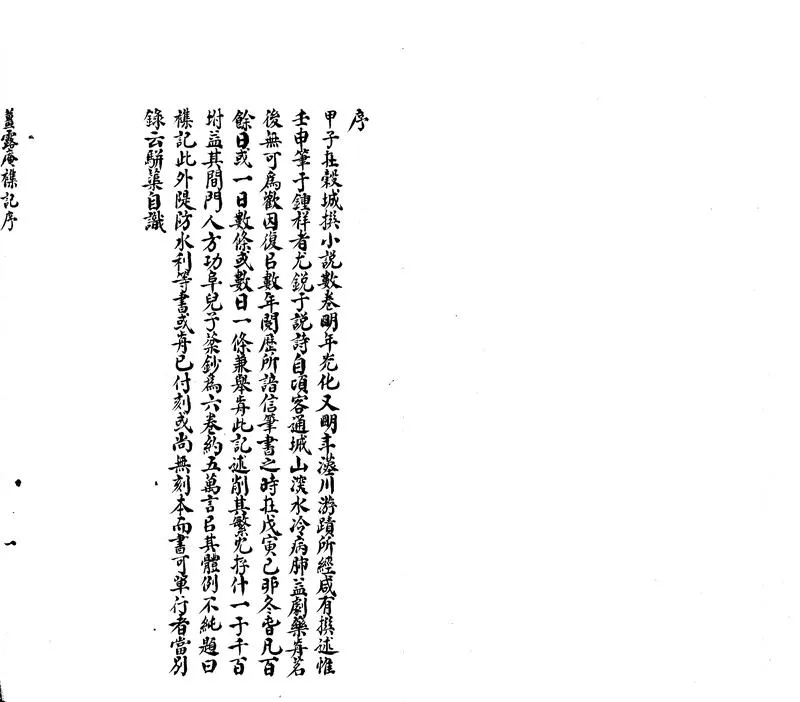 序
甲子在穀城撰小説數卷明年光化又明年灃川游蹟所經咸有撰述惟
壬申筆于鍾祥者尤鋭于説詩自頃客通城山深水冷病肺益劇藥歬茗
後無可爲歡因復㠯數年閱歷所諳信筆書之時在戊寅己卯冬旹凡百
餘日或一日數條或數日一條兼舉歬此記述削其繁冗存什一于千百
坿益其間門人方功阜兒子蕖鈔爲六卷約五萬言㠯其體例不純題曰
襍記此外隄防水利等書或歬已付刻或尚無刻本而書可單行者當别
錄云駢蕖自識
薑露庵襍記序
一